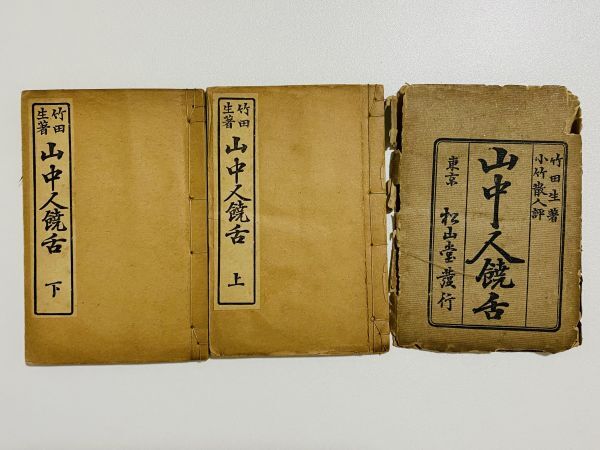 竹田
生著
山中人饒舌
下
竹田
生著
山中人饒舌
上
竹田生著
小竹散人評
山中人饒舌
東京 松山堂發行